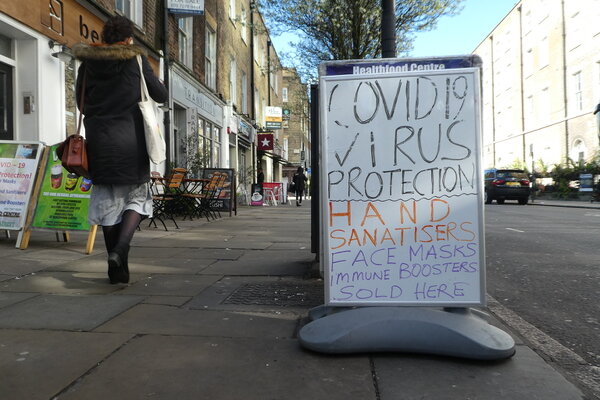 Healthfood Centre
COVID19
VIRUS
PROTECTION
HAND
SANATISERS
FACE MASKS
IMMUNE BOOSTERS
SOLD HERE
be